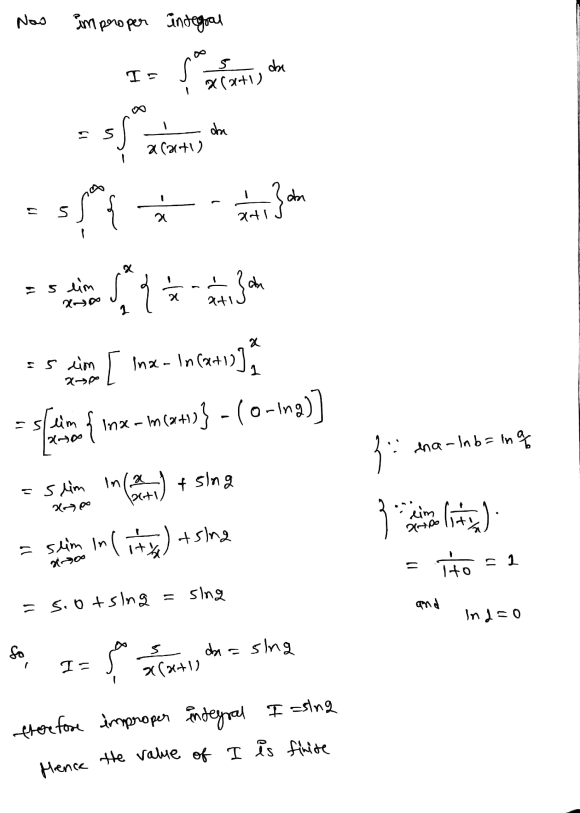 Now improper integral
I = ∫₁^∞ 5/(x(x+1)) dx
= 5∫₁^∞ 1/(x(x+1)) dx
= 5∫₁^∞ { 1/x - 1/(x+1) } dx
= 5 lim x→∞ ∫₁^x { 1/x - 1/(x+1) } dx
= 5 lim x→∞ [ lnx - ln(x+1) ]₁^x
= 5[ lim x→∞ { lnx - ln(x+1) } - (0 - ln2) ]
} ∵ lna - lnb = ln a/b
= 5 lim x→∞ ln( x/(x+1) ) + 5ln2
} ∵ lim x→∞ ( 1/(1+1/x) ).
= 5 lim x→∞ ln( 1/(1+1/x) ) + 5ln2
= 1/(1+0) = 1
= 5.0 + 5ln2 = 5ln2
and ln1 = 0
So, I = ∫₁^∞ 5/(x(x+1)) dx = 5ln2
therefore improper integral I = 5ln2
Hence the value of I is finite